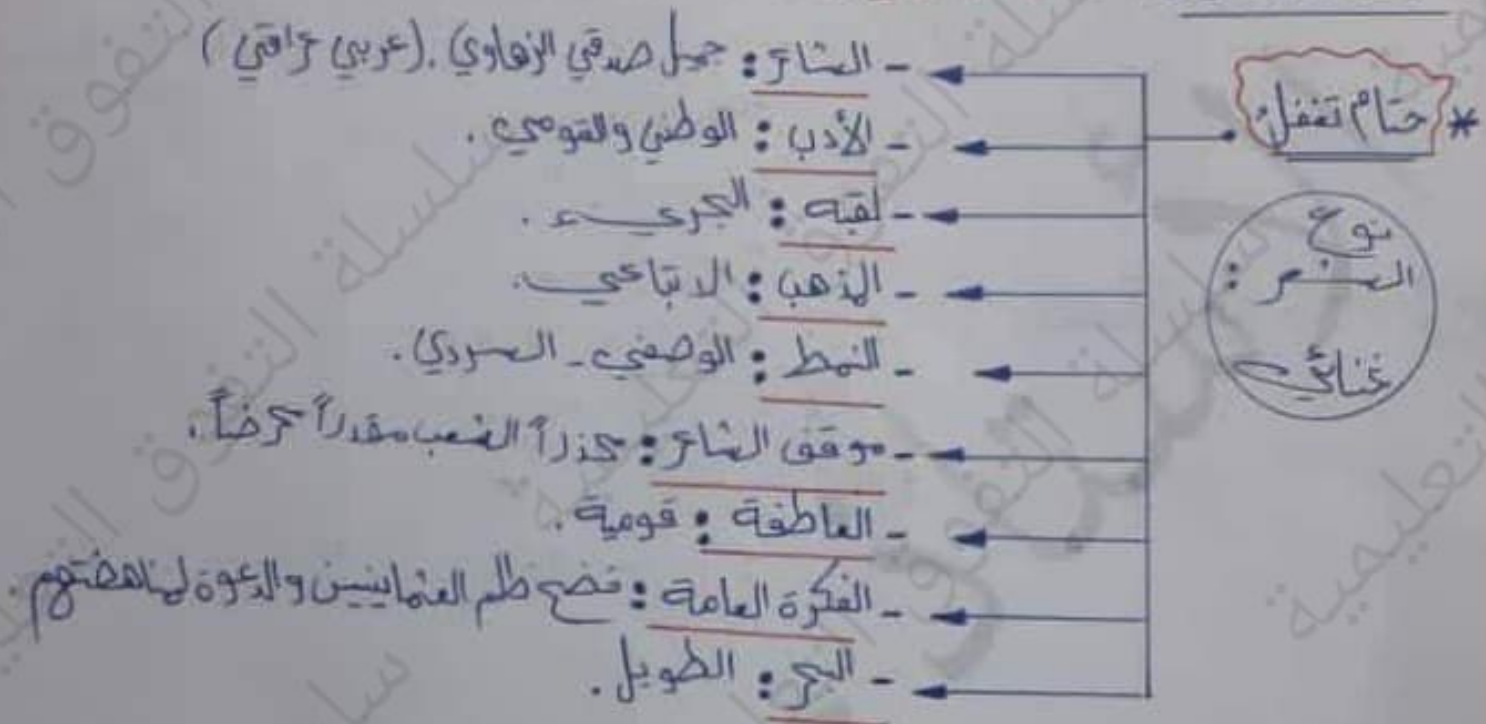 * حتام تغفل:
نوع
الشعر:
غنائي
- الشاعر: جميل صدقي الزهاوي. (عربي عراقي)
- الأدب: الوطني والقومي.
- لقبه: الجريء.
- المذهب: الاتباعي.
- النمط: الوصفي - السردي.
- موقف الشاعر: محذراً الشعب مقدراً محرضاً.
- العاطفة: قومية.
- الفكرة العامة: فضح ظلم العثمانيين والدعوة لمناهضتهم
- البحر: الطويل.
سلسلة التفوق التعليمية